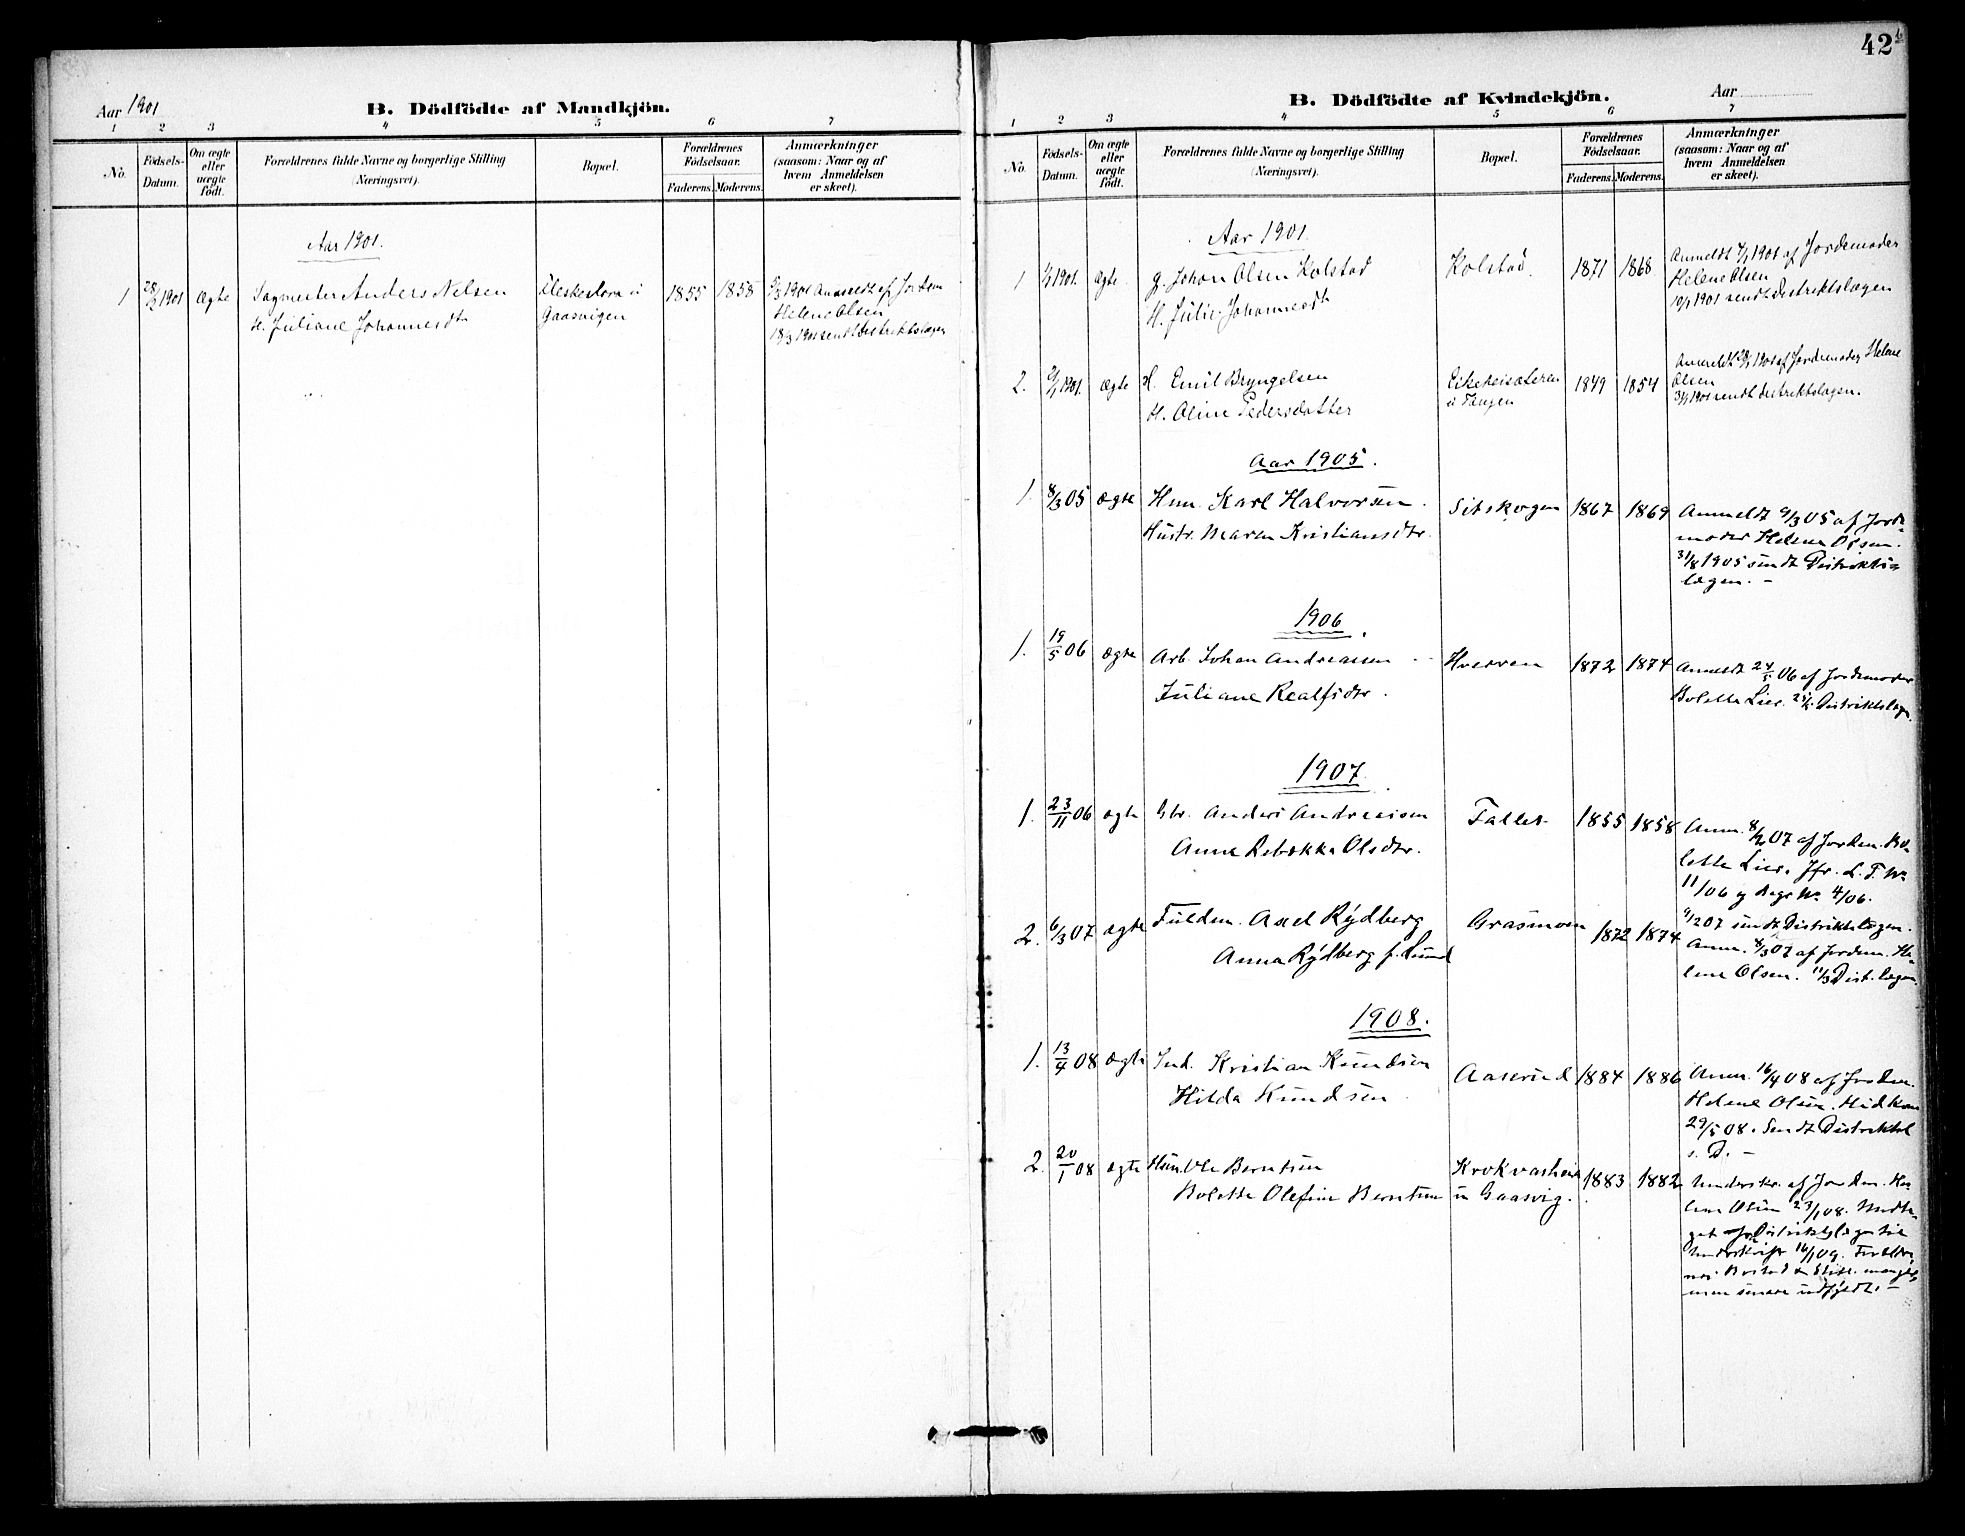 Aar 1901
B. Dödfödte af Mandkjön.
1 2 3 4 5 6 7
No.
Födsels-
Datum.
Om ægte
eller
uægte
födt.
Forældrenes fulde Navne og borgerlige Stilling
(Næringsvei).
Bopæl.
Forældrenes
Födselsaar.
Faderens. Moderens.
Anmærkninger
(saasom: Naar og af
hvem Anmeldelsen
er skeet).
Aar 1901.
1 28/2 1901 Ægte Sagmester Anders Nilsen
H. Juliane Johannesdt
i
Gaasvigen
1855 1858
1901 Anmeldt af Jordem
Helene Olsen
18/3 1901 sendt Distriktslægen
42
B. Dödfödte af Kvindekjön.
Aar
1 2 3 4 5 6 7
No.
Födsels-
Datum.
Om ægte
eller
uægte
födt.
Forældrenes fulde Navne og borgerlige Stilling
(Næringsvei).
Bopæl.
Forældrenes
Födselsaar.
Faderens. Moderens.
Anmærkninger
(saasom: Naar og af
hvem Anmeldelsen
er skeet).
Aar 1901
1 1901. ægte g. Johan Olsen Kolstad Kolstad. 1871 1868
H. Julie Johannesdt
Anmeldt 1901 af Jordemoder
Helene Olsen
10/1 1901 sendt Distriktslægen
2. 1901. ægte H. Emil Bryngelsen
H. Oline Pedersdatter
i Tangen
1849 1854
Anmeldt 1901 af Jordemoder Helene
Olsen
31/1 1901 sendt Distriktslægen.
Aar 1905.
1. 8/3 05 ægte Hmn. Karl Halvorsen Sitskogen 1867 1869
Hustr. Maren Kristiansdtr.
Anmeldt 9/3 05 af Jorde-
moder Helene Olsen.
31/8 1905 sendt Distrikts-
lægen. —
1906
1. 19/5 06 ægte Arb. Johan Andreasen Hverven 1872 1874
Juliane Realfsdtr.
Anmeldt 24/5 06 af Jordemoder
Bolette Lier. 25/5 Distriktslægen.
1907
1. 23/11 06 ægte Gbr. Anders Andreasen Fallet 1855 1858
Anne Rebekka Olsdtr.
Anm. 07 af Jordem. Bo-
lette Lier. Jfr. L. F. No
11/06 og No 4/06.
9/2 07 sendt Distriktslægen.
2. 6/3 07 ægte Fuldm. Axel Rÿdberg Grasmoen 1872 1874
Anna Rÿdberg f. Lund
Anm. 8/3 07 af Jordem. He-
lene Olsen. 11/3 Dist. lægen.
1908.
1. 13/4 08 ægte Ind. Kristian Knudsen Aaserud 1884 1886
Hilda Knudsen
Anm. 16/4 08 af Jordem.
Helene Olsen. Hidkom
29/5 08. Sendt Distriktsl
s. D. —
2. 20/1 08 ægte Hmn. Ole Berntsen
Bolette Olefine Berntsen
i Gaasvig.
1883 1882
Underskr. af Jordem. He-
lene Olsen 23/1 08. Modta-
get fra Distriktslægen til
Underskrift 16/1 09. Forældre-
nes Bosted &
men senere udfÿldt. —